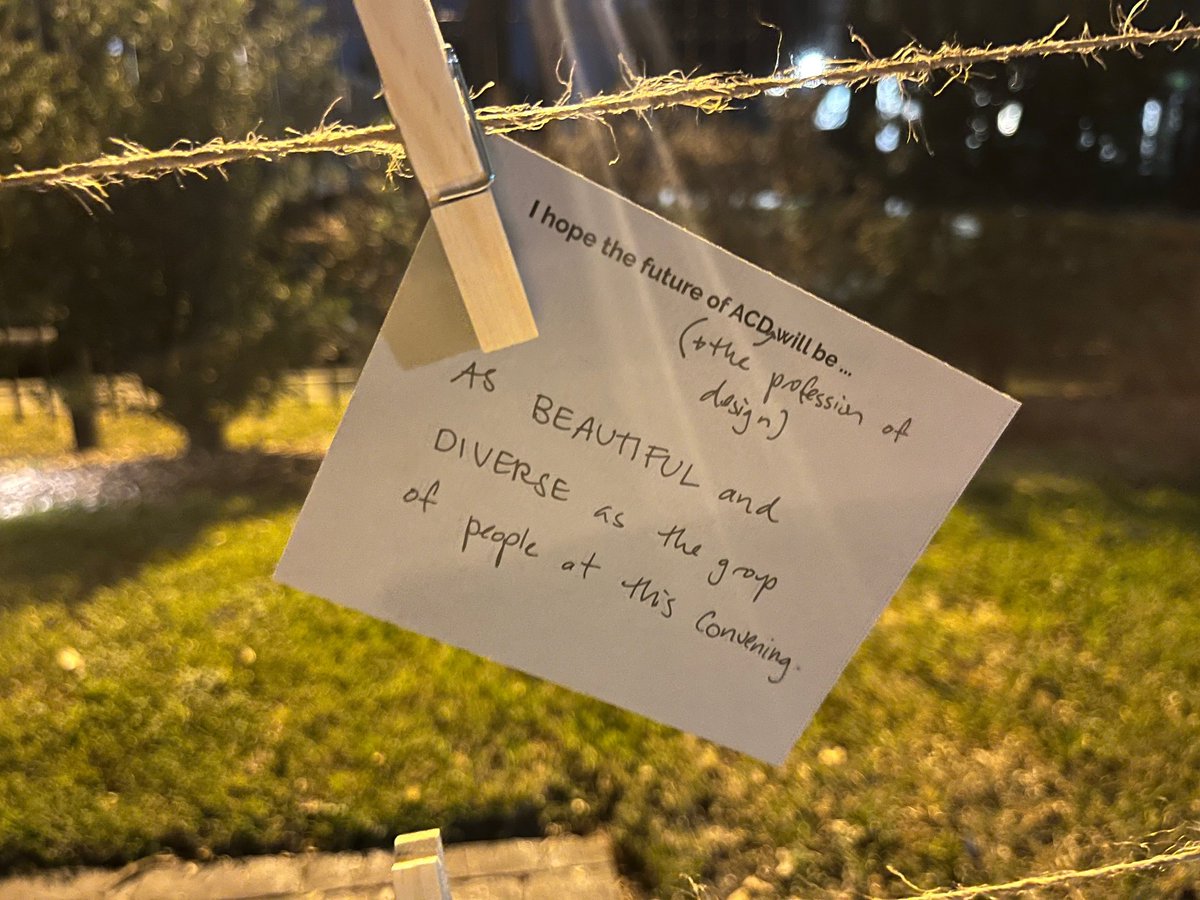 I hope the future of ACD, will be ...
(+ the profession of
design)
AS BEAUTIFUL and
DIVERSE as the group
of people at this Convening.